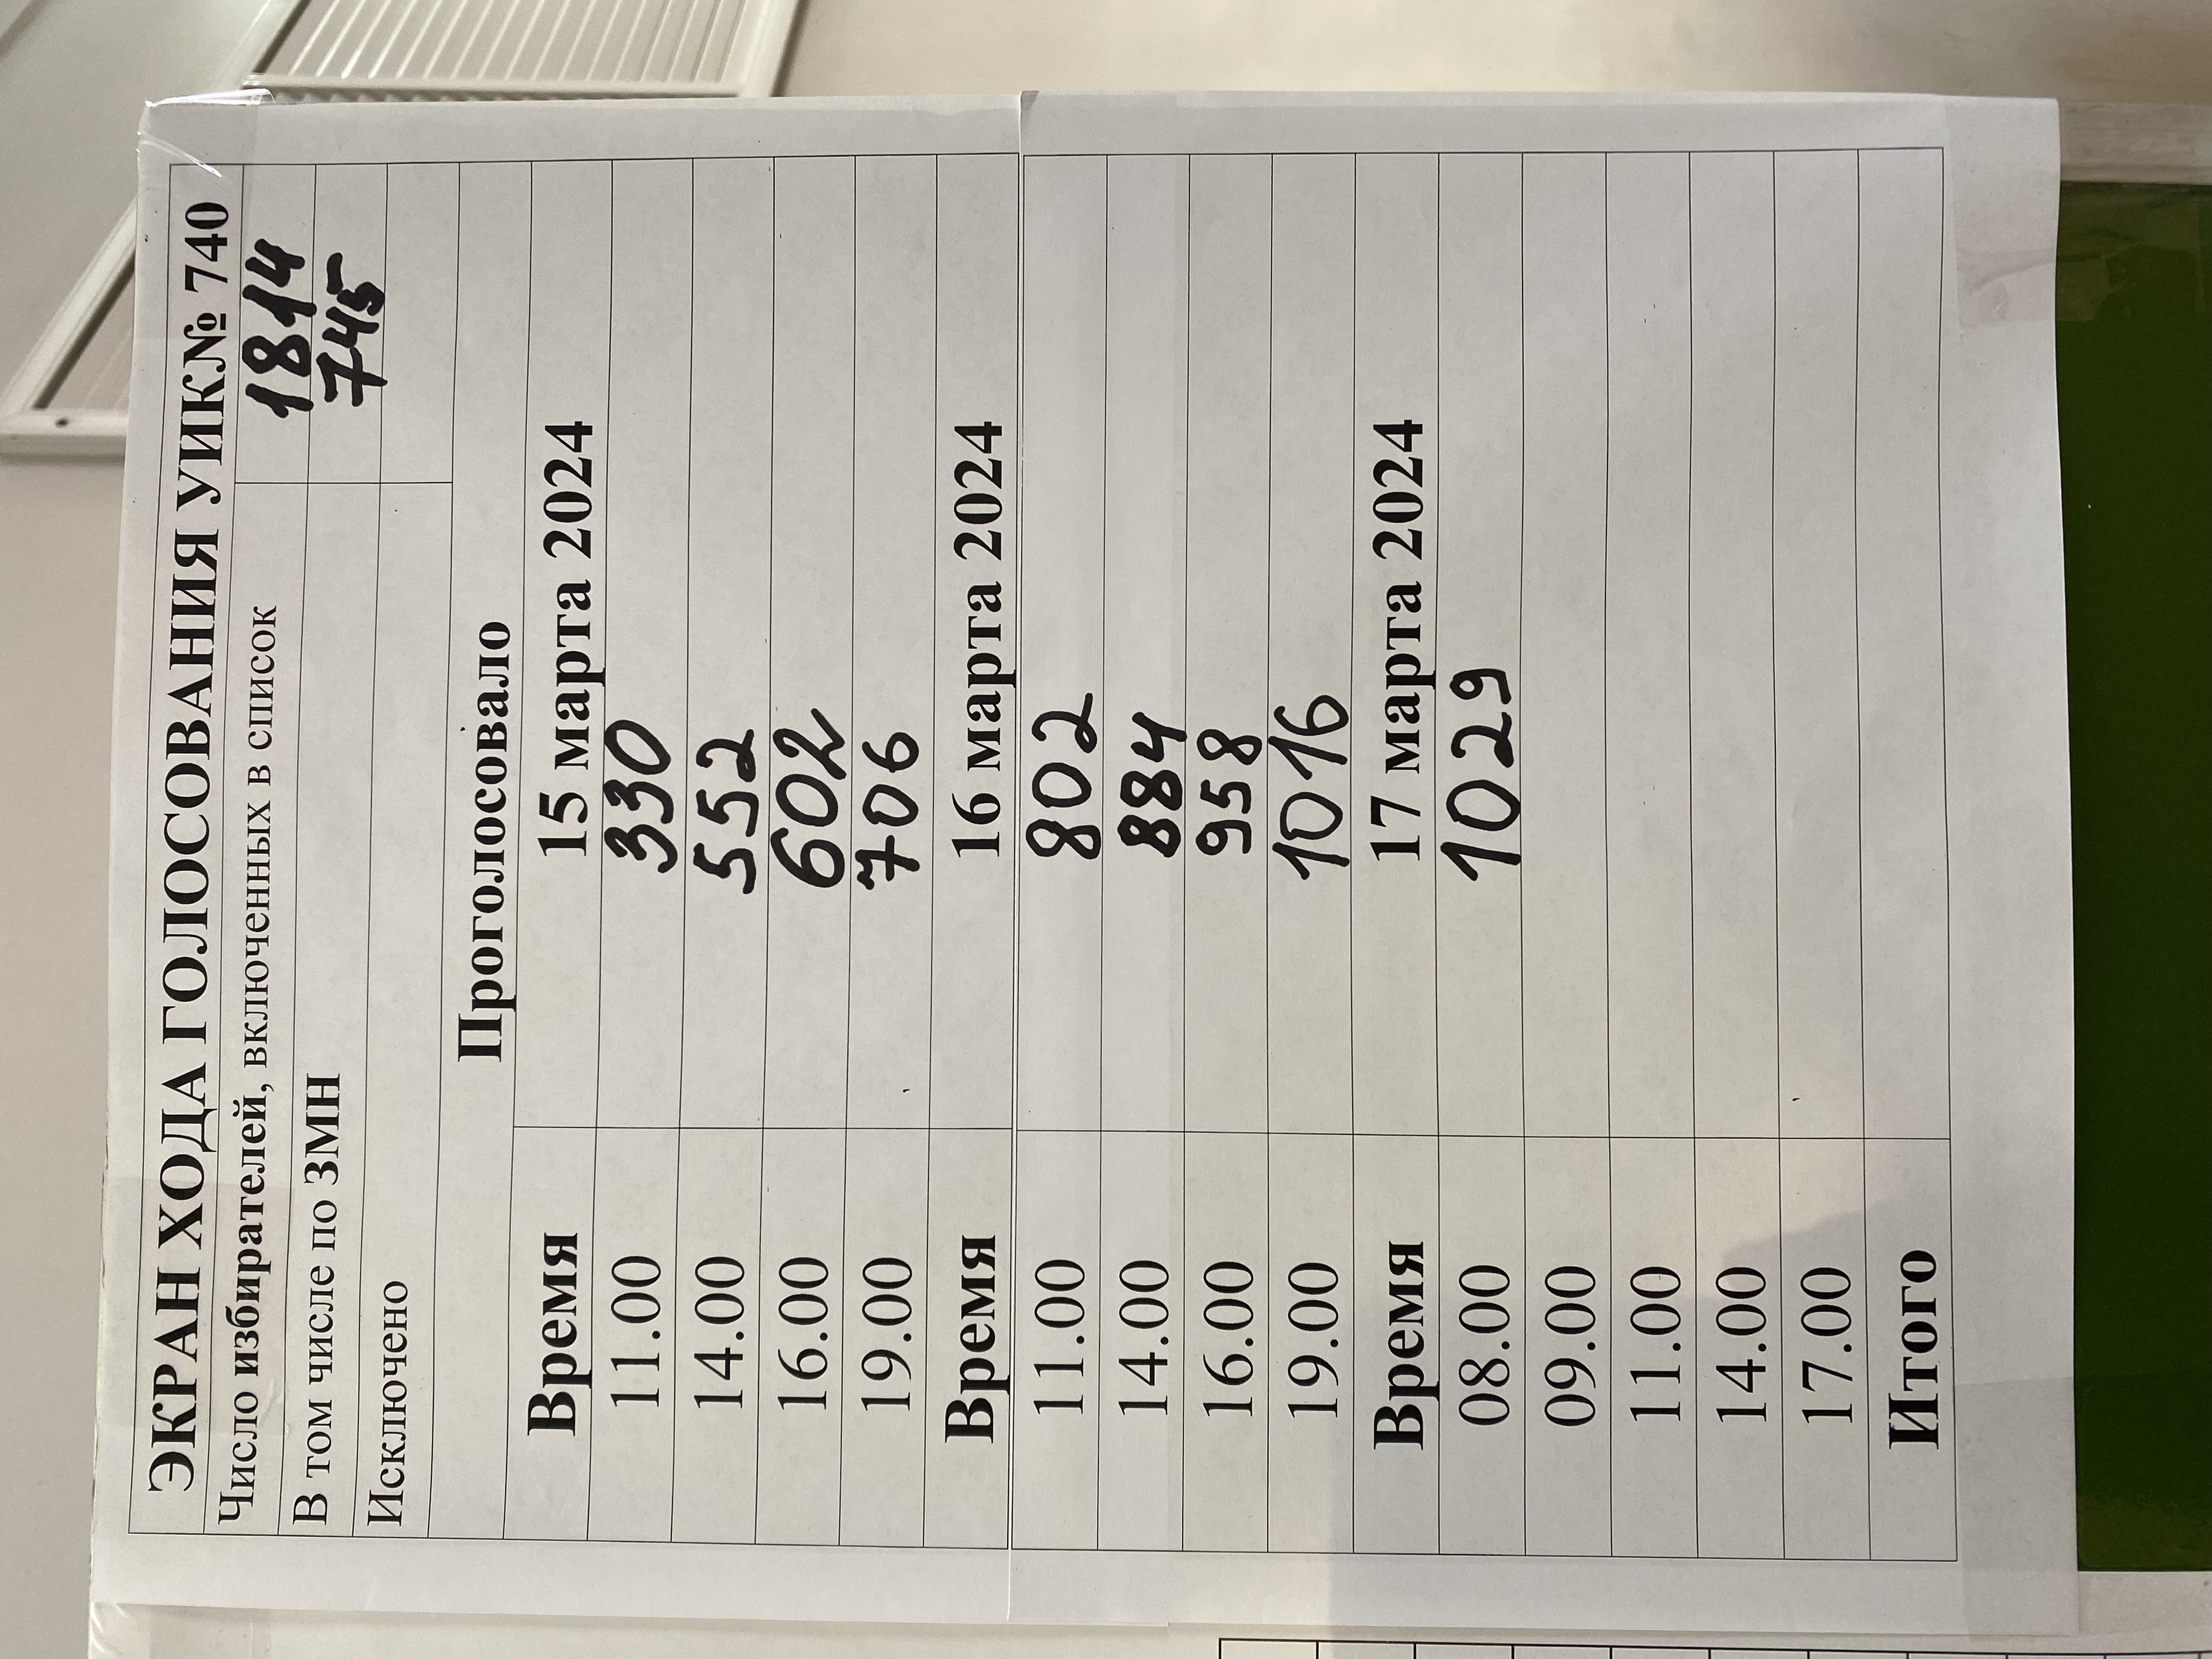 ЭКРАН ХОДА ГОЛОСОВАНИЯ УИК№ 740
Число избирателей, включенных в список 1814
В том числе по ЗМН 745
Исключено
Проголосовало
Время 15 марта 2024
11.00 330
14.00 552
16.00 602
19.00 706
Время 16 марта 2024
11.00 802
14.00 884
16.00 958
19.00 1016
Время 17 марта 2024
08.00 1029
09.00
11.00
14.00
17.00
Итого